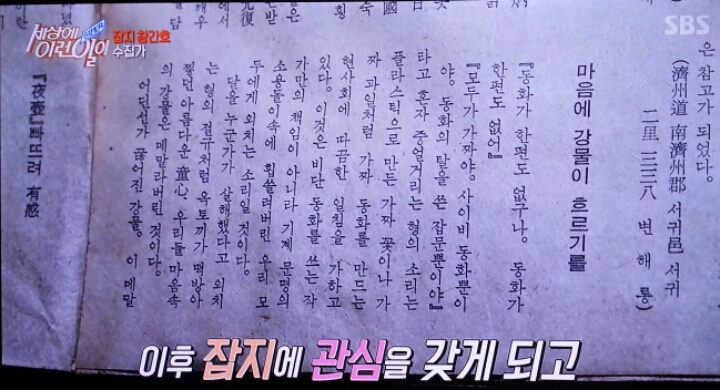 세상에 이런일이
잡지 창간호
수집가
SBS
은 참고가 되었다.
(濟州道 南濟州郡 서귀邑 서귀
二里 一三三八 변 해 룡)
마음에 강물이 흐르기를
『동화가 한편도 없구나. 동화가
한편도 없어』
『모두가 가짜야. 사이비 동화뿐이
야. 동화의 탈을 쓴 잡문뿐이야』
라고 혼자 중얼거리는 형의 소리는
플라스틱으로 만든 가짜 꽃이나 가
짜 과일처럼 가짜 동화를 만드는
현사회에 따끔한 일침을 가하고
있다. 이것은 비단 동화를 쓰는 작
가만의 책임이 아니라 기계 문명의
소용돌이속에 휩쓸려버린 우리 모
두에게 외치는 소리일 것이다.
달을 누군가가 살해했다고 외치
는 형의 절규처럼 옥토끼가 떡방아
찧던 아름다운 童心, 우리들 마음속
의 강물은 메말라버린 것이다.
어딘선가 끊어진 강물. 이 메말
빠뜨려 有感
이후 잡지에 관심을 갖게 되고